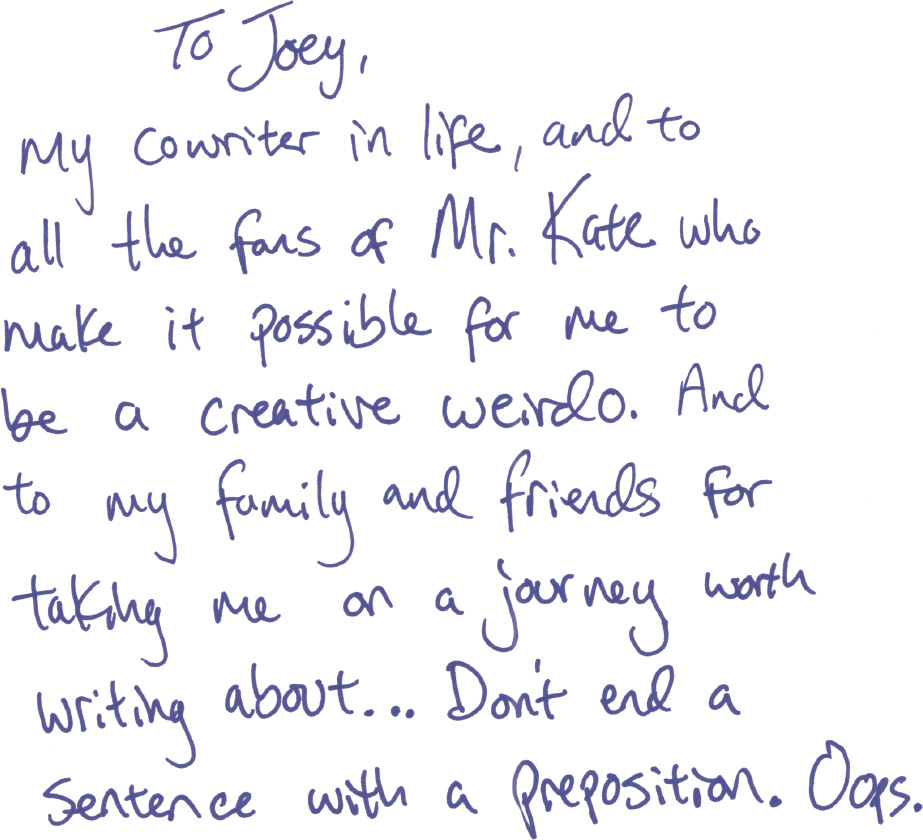 To Joey,
my cowriter in life, and to
all the fans of Mr. Kate who
make it possible for me to
be a creative weirdo. And
to my family and friends for
taking me on a journey worth
writing about... Don't end a
sentence with a preposition. Oops.